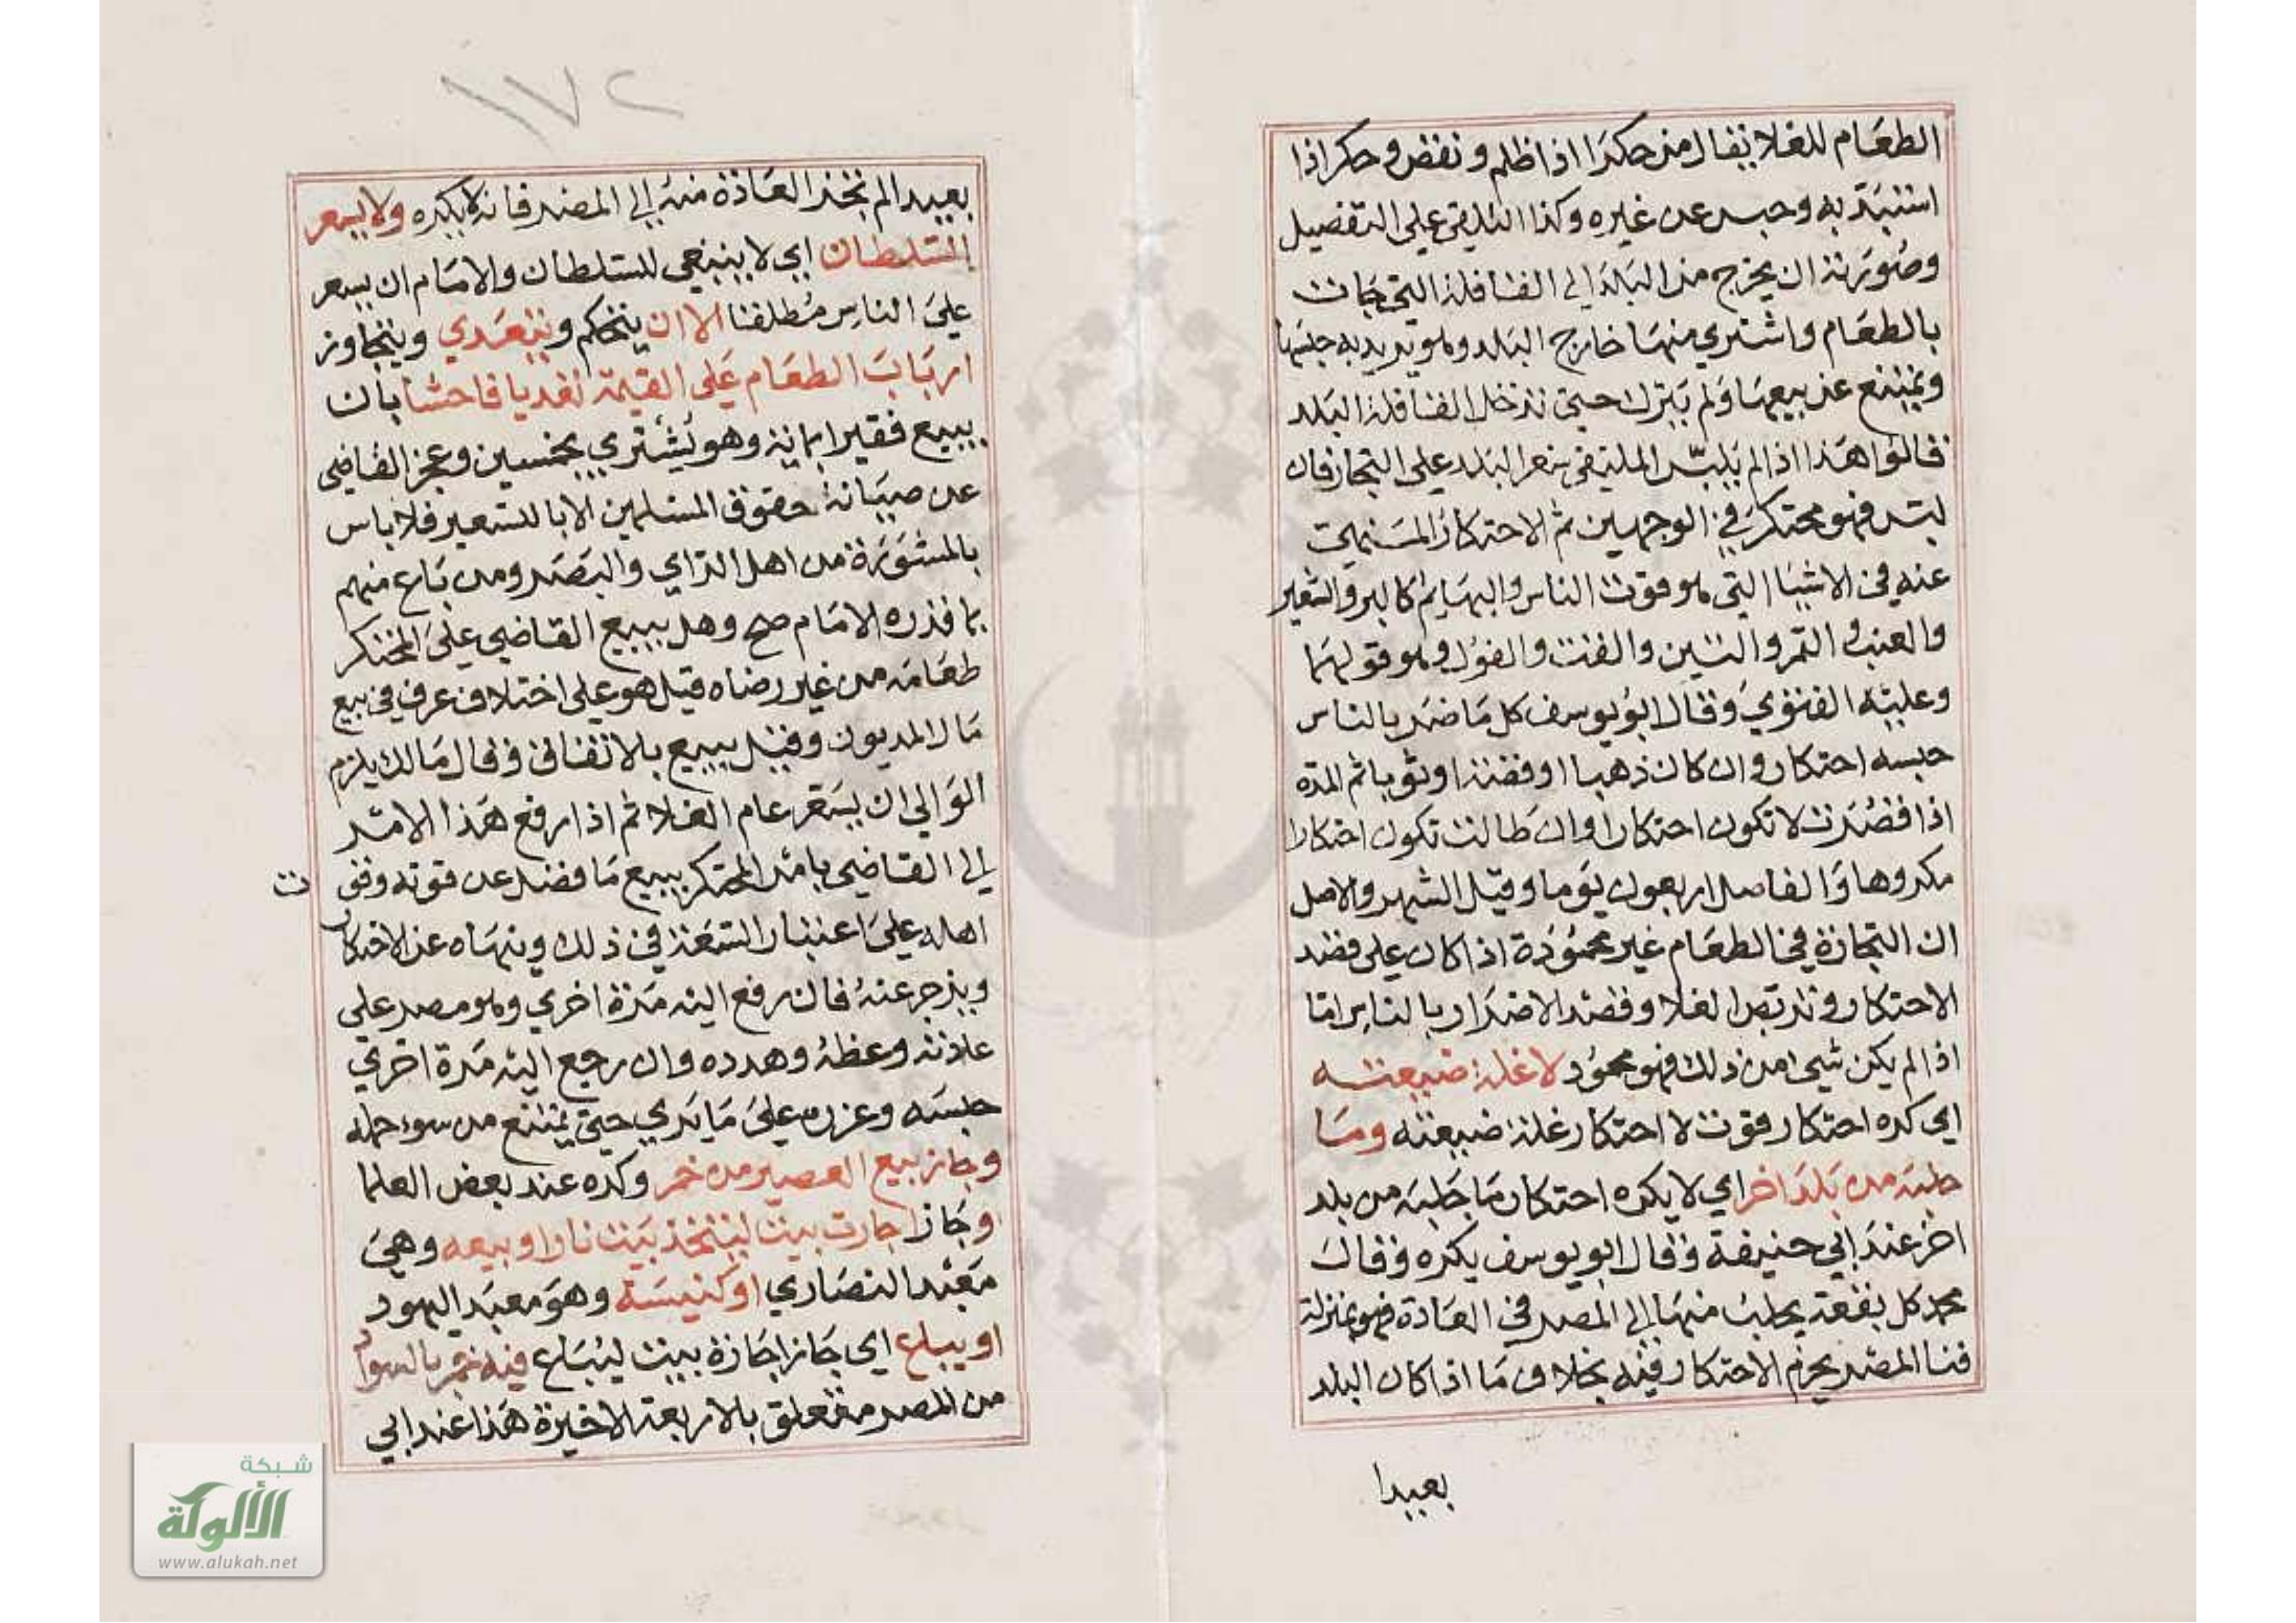 الطعام للغلا يقال من حكرا اذا ظلم ونقض وحكر اذا
استبد به وحبس عن غيره وكذا التلقي علي التفصيل
وصورته ان يخرج من البلد الي القافلة التي جات
بالطعام واشتري منها خارج البلد وهو يريد به حبسها
ويمتنع عن بيعها ولم يترك حتي تدخل القافلة البلد
قالوا هذا اذا لم يلبس الملتقي سعر البلد علي التجار فان
لبس فهو محتكر في الوجهين ثم الاحتكار المنهي
عنه في الاشيا التي هو قوت الناس والبهايم كالبر والشعير
والعنب والتمر والتين والقت والفول وهو قولهما
وعليه الفتوي وقال ابو يوسف كل ما ضر بالناس
حبسه احتكار وان كان ذهبا او فضة او ثوبا ثم المدة
اذا قصرت لا تكون احتكارا وان طالت تكون احتكارا
مكروها والفاصل اربعون يوما وقيل الشهر والاصل
ان التجارة في الطعام غير محمودة اذا كان علي قصد
الاحتكار وتربص الغلا وقصد الاضرار بالناس اما
اذا لم يكن شيء من ذلك فهو محمود لا غلة ضيعته
اي كره احتكار قوت لا احتكار غلة ضيعته وما
جلبه من بلد اخر اي لا يكره احتكار ما جلبه من بلد
اخر عند ابي حنيفة وقال ابو يوسف يكره وقال
محمد كل بقعة يجلب منها الي المصر في العادة فهو بمنزلة
فنا المصر يحرم الاحتكار فيه بخلاف ما اذا كان البلد
بعيدا
١٧٢
بعيدا لم تجز العادة منه الي المصر فانه لا يكره ولا يسعر
السلطان اي لا ينبغي للسلطان والامام ان يسعر
علي الناس مطلقا الا ان يتحكم ويتعدي ويتجاوز
ارباب الطعام علي القيمة تعديا فاحشا بان
يبيع قفيرا بماية وهو يشتري بخمسين وعجز القاضي
عن صيانة حقوق المسلمين الا بالتسعير فلا باس
بالمشورة من اهل الراي والبصر ومن باع منهم
بما قدره الامام صح وهل يبيع القاضي علي المحتكر
طعامه من غير رضاه قيل هو علي اختلاف عرف في بيع
مال المديون وقيل يبيع بالاتفاق وقال مالك يلزم
الوالي ان يسعر عام الغلا ثم اذا رفع هذا الامر
الي القاضي يامر المحتكر ببيع ما فضل عن قوته وقوت
اهله علي اعتبار السعة في ذلك وينهاه عن الاحتكار
ويزجر عنه فان رفع اليه مرة اخري وهو مصر علي
عادته وعظه وهدده وان رجع اليه مرة اخري
حبسه وعزره علي ما يري حتي يمتنع من سوء حمله
وجاز بيع العصير من خمر وكره عند بعض العلما
وجاز اجارت بيت ليتخذ بيت نار او بيعه وهي
معبد النصاري او كنيسة وهو معبد اليهود
او يباع اي جاز اجازة بيت ليباع فيه خمر بالسواد
من المصر متعلق بالاربعة الاخيرة هذا عند ابي
شبكة
الألوكة
www.alukah.net